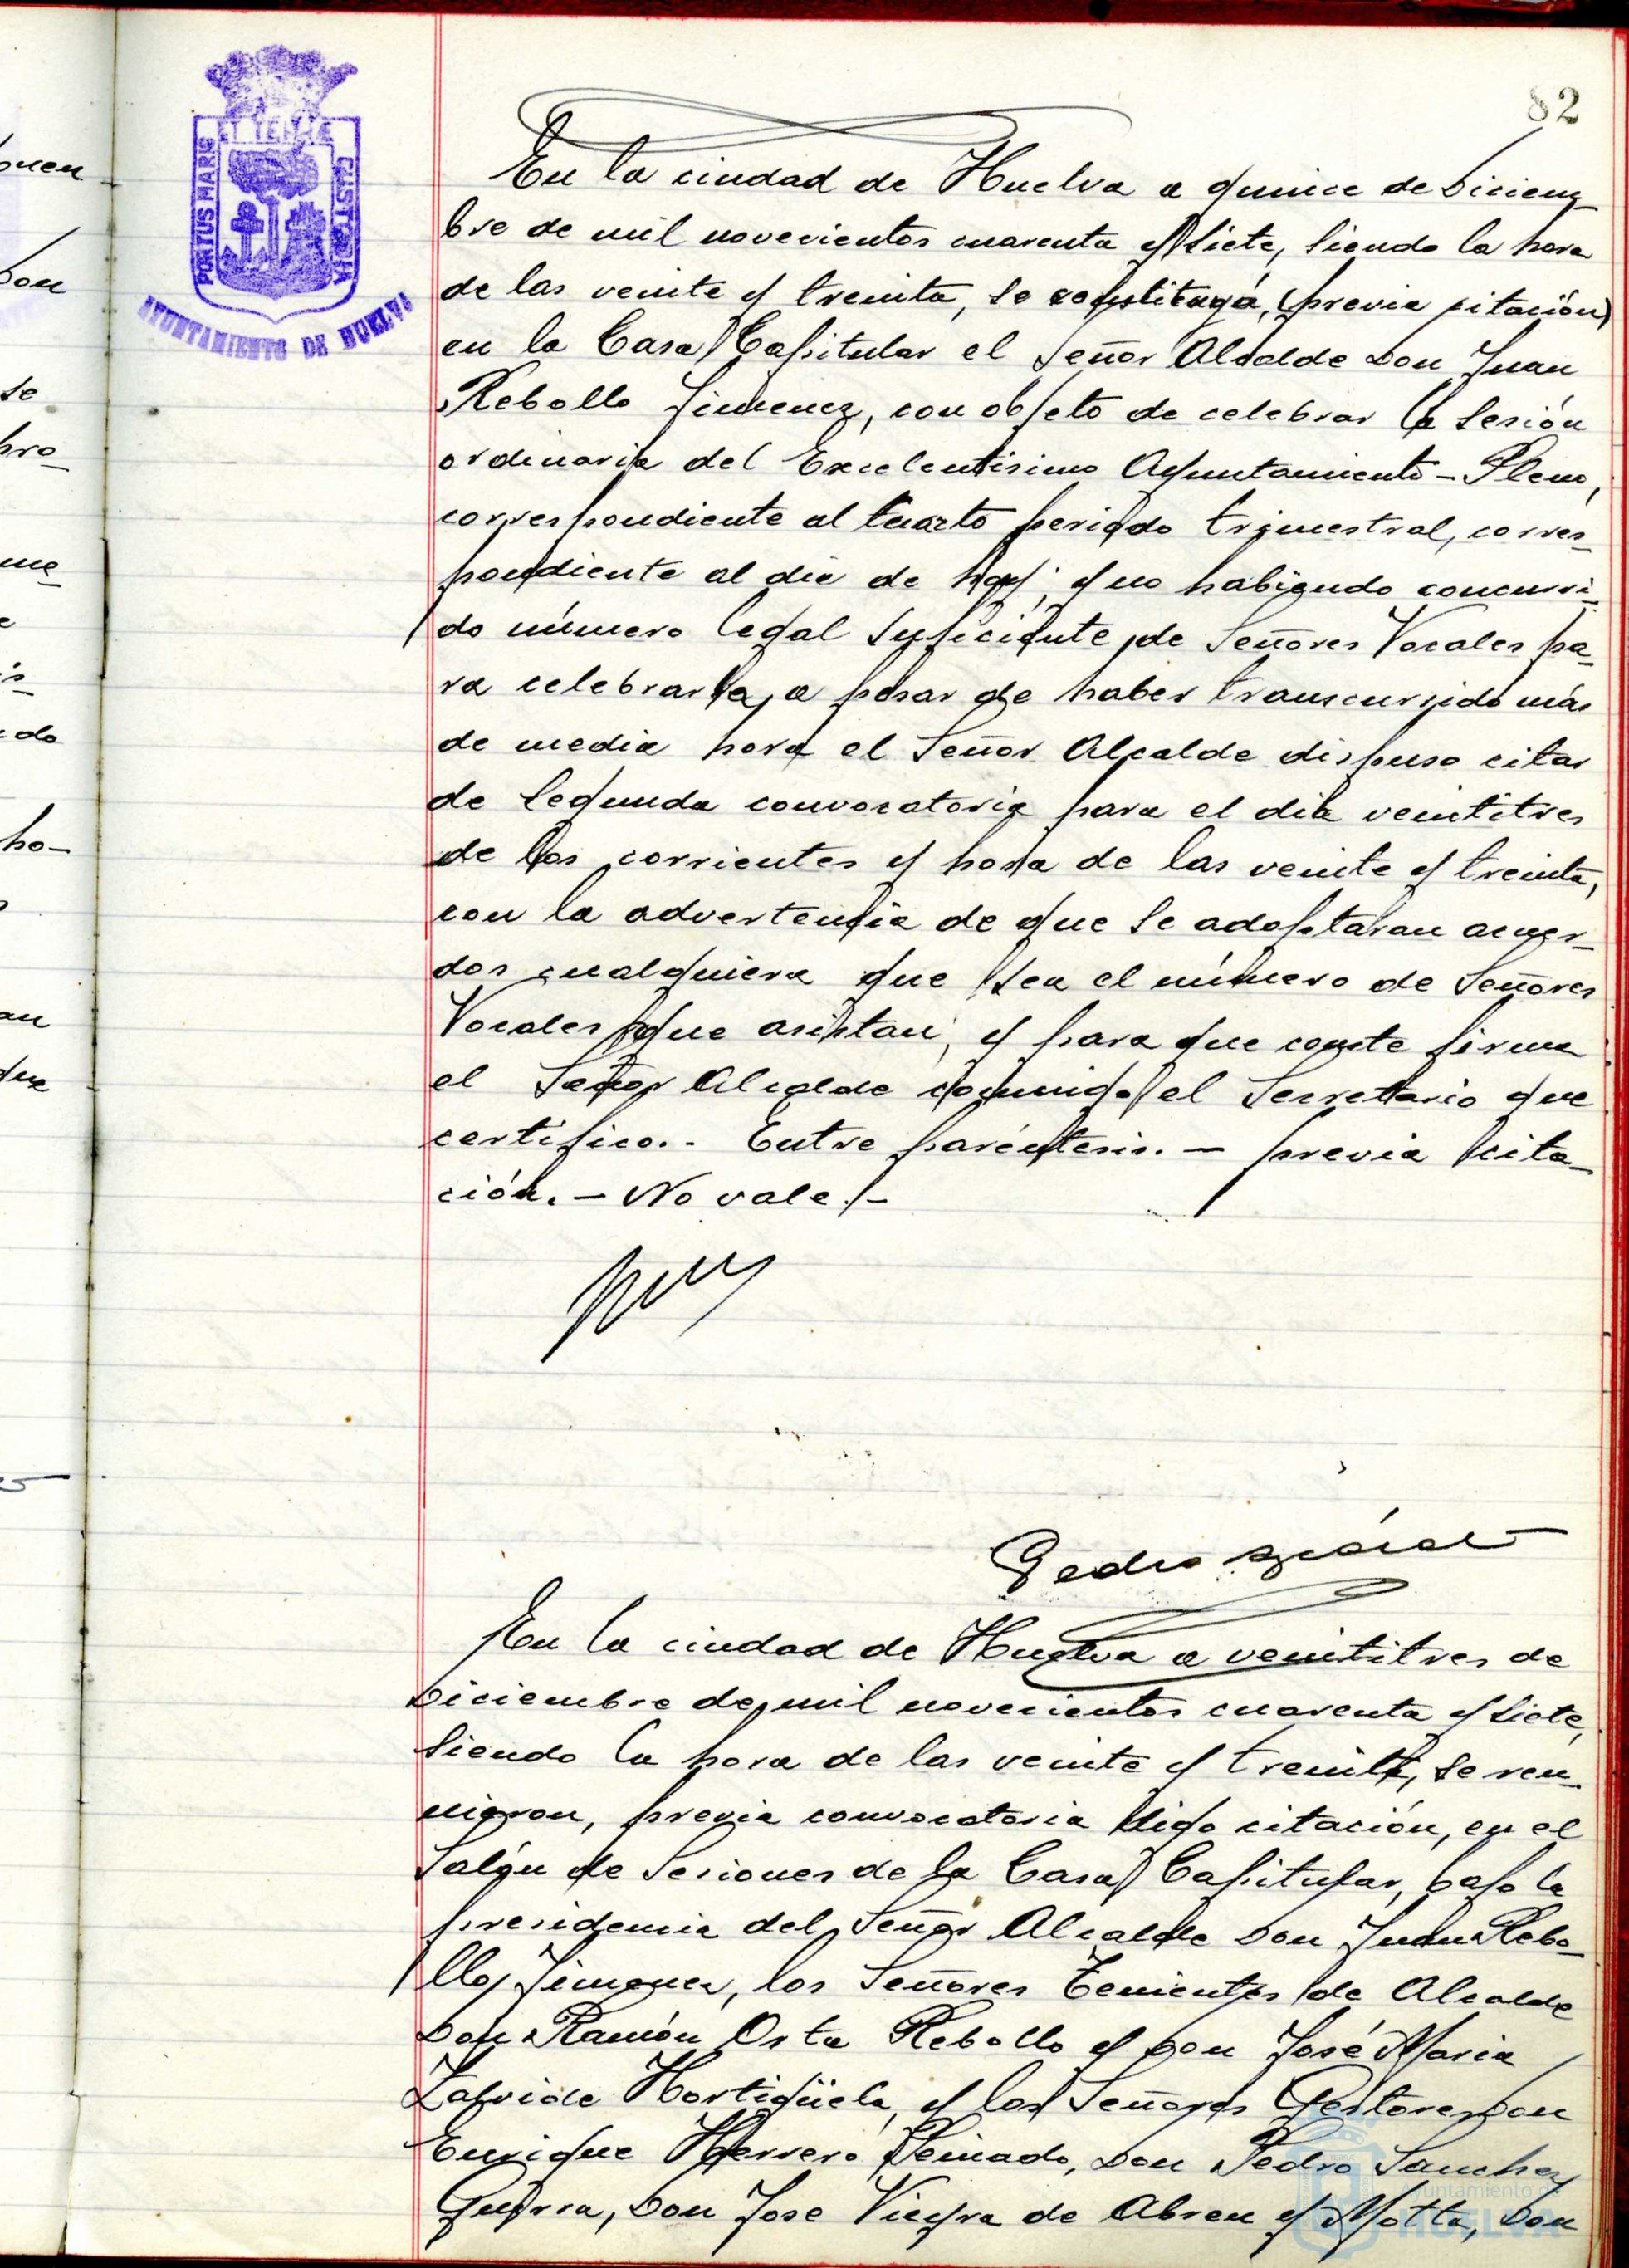 82
PORTUS MARIS ET TERRE CUSTODIA
AYUNTAMIENTO DE HUELVA
En la ciudad de Huelva a quince de Diciem-
bre de mil novecientos cuarenta y siete, siendo la hora
de las veinte y treinta, se constituyó, (previa citación)
en la Casa Capitular el Señor Alcalde Don Juan
Rebollo Jimenez, con objeto de celebrar la sesión
ordinaria del Excelentisimo Ayuntamiento-Pleno,
correspondiente al cuarto periodo trimestral, corres-
pondiente al dia de hoy; y no habiendo concurri-
do número legal suficiente de Señores Vocales pa-
ra celebrarla, a pesar de haber transcurrido más
de media hora el Señor Alcalde dispuso citar
de segunda convocatoria para el dia veintitres
de los corrientes y hora de las veinte y treinta,
con la advertencia de que se adoptaran acuer-
dos cualquiera que sea el número de Señores
Vocales que asistan; y para que conste firma
el Señor Alcalde conmigo el Secretario que
certifico.- Entre paréntesis.- previa cita-
ción.- No vale.-
Pedro
En la ciudad de Huelva a veintitres de
Diciembre de mil novecientos cuarenta y siete,
siendo la hora de las veinte y treinta, se reu-
nieron, previa convocatoria digo citación, en el
Salón de Sesiones de la Casa Capitular, bajo la
presidencia del Señor Alcalde Don Juan Rebo-
llo Jimenez, los Señores Tenientes de Alcalde
Don Ramón Orta Rebollo y Don José Maria
Zafvide Hortigüela, y los Señores Gestores Don
Enrique Herrero Peinado, Don Pedro Sanchez
Guerra, Don Jose Vieyra de Abreu y Motta, Don
Ayuntamiento de
HUELVA